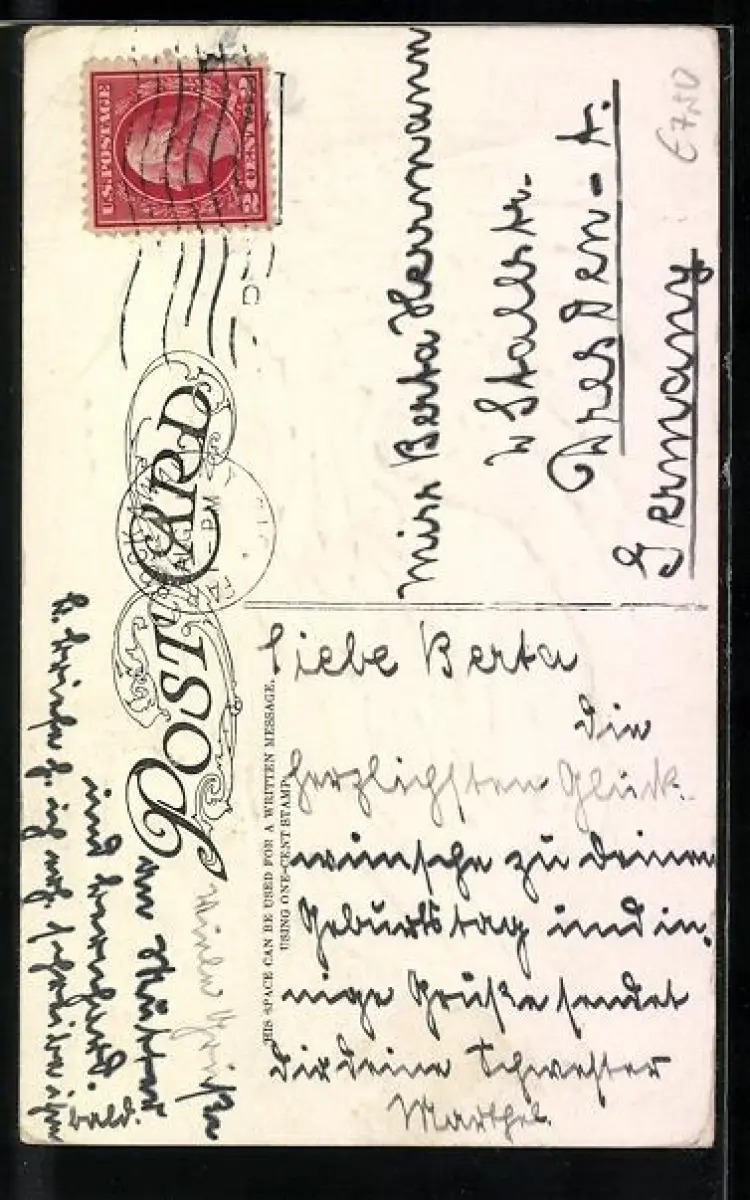 U.S. POSTAGE
2 CENTS 2
POST CARD
THIS SPACE CAN BE USED FOR A WRITTEN MESSAGE,
USING ONE-CENT STAMP.
€ 7,50
Miss Berta Herrmann
Stallstr.
Dresden-A.
Germany
Liebe Berta
Die
herzlichsten Glück-
wünsche zu deinem
Geburtstag und in-
nige Grüße sendet
dir deine Schwester
Marthel.
Viele Grüße
an Mutter
und
ich
schreibe ihm
bald.